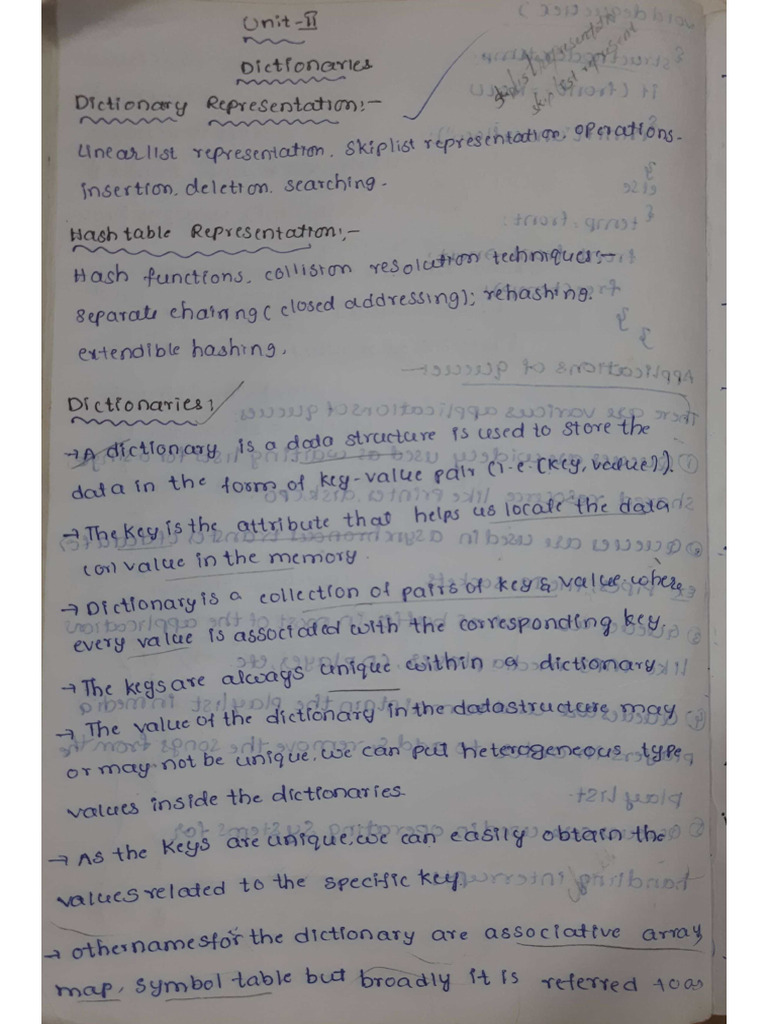 Unit-II
Dictionaries
skiplist representation
skip list represent
Dictionary Representation:-
Linearlist representation, skiplist representation, operations-
insertion, deletion, searching.
Hash table Representation:-
Hash functions, collision resolution techniques:-
separate chaining (closed addressing); rehashing.
extendible hashing.
Dictionaries:
→ A dictionary is a data structure is used to store the
data in the form of key-value pair (i.e. (key, value)).
→ The key is the attribute that helps us locate the data
(or) value in the memory.
→ Dictionary is a collection of pairs of key & value where
every value is associated with the corresponding key.
→ The keys are always unique within a dictionary
→ The value of the dictionary in the datastructure may
or may not be unique. we can put heterogeneous type
values inside the dictionaries.
→ As the keys are unique, we can easily obtain the
values related to the specific key.
→ othernamesfor the dictionary are associative array,
map, symbol table but broadly it is referred to as